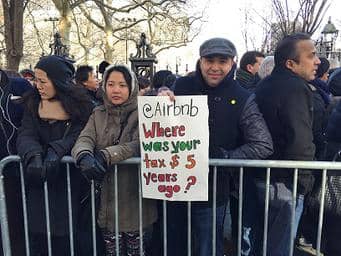 @Airbnb
Where
was your
tax $ 5
years
ago?